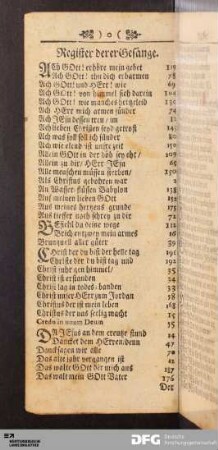 ) o (
Register derer Gesänge.
ACh GOtt! erhöre mein gebet 119
Ach GOtt! thu dich erbarmen 78
Ach GOtt! und HErr! wie 69
Ach GOtt! von himmel sieh darein 104
Ach GOtt! wie manches hertzeleid 139
Ach HErr mich armen sünder
Ach JEsu dessen treu / im
Ach lieben Christen seyd getrost
Ach was soll ich sünder
Ach wie elend ist unsre zeit 150
Allein GOtt in der höh sey ehr /
Allein zu dir HErr JEsu
Alle menschen müssen sterben /
Als Christus gebohren war
An Wasser-flüssen Babylon 138
Auf meinen lieben GOtt
Aus meines hertzens grunde 175
Aus tieffer noth schrey zu dir 72
BEfiehl du deine wege
Brich entzwey mein armes 16
Brunnquell aller güter 39
CHrist der du bist der helle tag 191
Christe der du bist tag und 192
Christ fuhr gen himmel / 35
Christ ist erstanden 24
Christ lag in todes-banden 33
Christ unser HErr zum Jordan 58
Christus der ist mein leben
Christus der uns seelig macht 15
Credo in unum Deum 55
DA JEsus an dem creutze stund 14
Dancket dem HErren / denn 47
Dancksagen wir alle
Das alte jahr vergangen ist
Das walte GOtt der mich aus 187
Das walt mein GOtt Vater 176
Der
DFG
Deutsche
Forschungsgemeinschaft